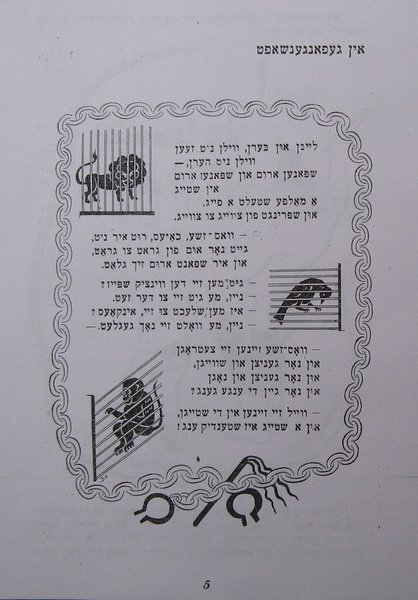 אין געפאנגענשאפט
לייבן און בערן, ווילן ניט זען
ווילן ניט הערן, —
שפאנען ארום און שפאנען ארום
אין שטייג
א מאלפע שטעלט א פייג.
און שפרינגט פון צווייג צו צווייג.
— וואס־זשע, כאיעס, רוט איר ניט,
גייט נאר אום פון גראט צו גראט,
און איר שפאנט ארום זיך גלאט.
— גיט מען זיי דען ווינציק שפייז?
— ניין, מע גיט זיי צו דער זעט.
— איז מען שלעכט צו זיי, אינקאעס?
— ניין, מע וואלט זיי נאך געגלעט. —
— וואס־זשע זיינען זיי צעטראגן
און נאר גענייצן און שווייגן,
און נאר גענייצן און נאגן
און נאר גיין די ענגע גענג?
— ווייל זיי זיינען אין די שטייגן,
און א שטייג איז שטענדיק ענג!
5